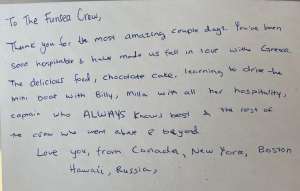 To The Funsea Crew,
Thank you for the most amazing couple days. You've been
sooo hospitable & have made us fall in love with Greece.
The delicious food, chocolate cake, learning to drive the
mini boat with Billy, Milla with all her hospitality,
captain who ALWAYS knows best & the rest of
the crew who went above & beyond
Love you, from Canada, New York, Boston
Hawaii, Russia,